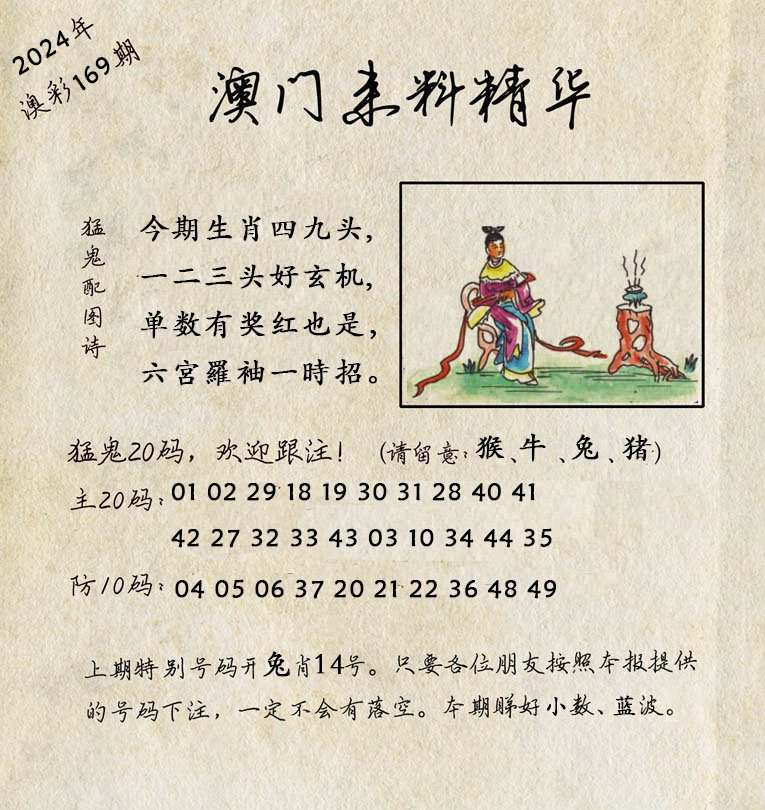 2024年
澳彩169期
澳门来料精华
猛鬼配图诗
今期生肖四九头,
一二三头好玄机,
单数有奖红也是,
六宫羅袖一時招。
猛鬼20码，欢迎跟注！ (请留意：猴、牛、兔、猪)
主20码：01 02 29 18 19 30 31 28 40 41
42 27 32 33 43 03 10 34 44 35
防10码：04 05 06 37 20 21 22 36 48 49
上期特别号码开兔肖14号。只要各位朋友按照本报提供
的号码下注，一定不会有落空。本期睇好小数、蓝波。